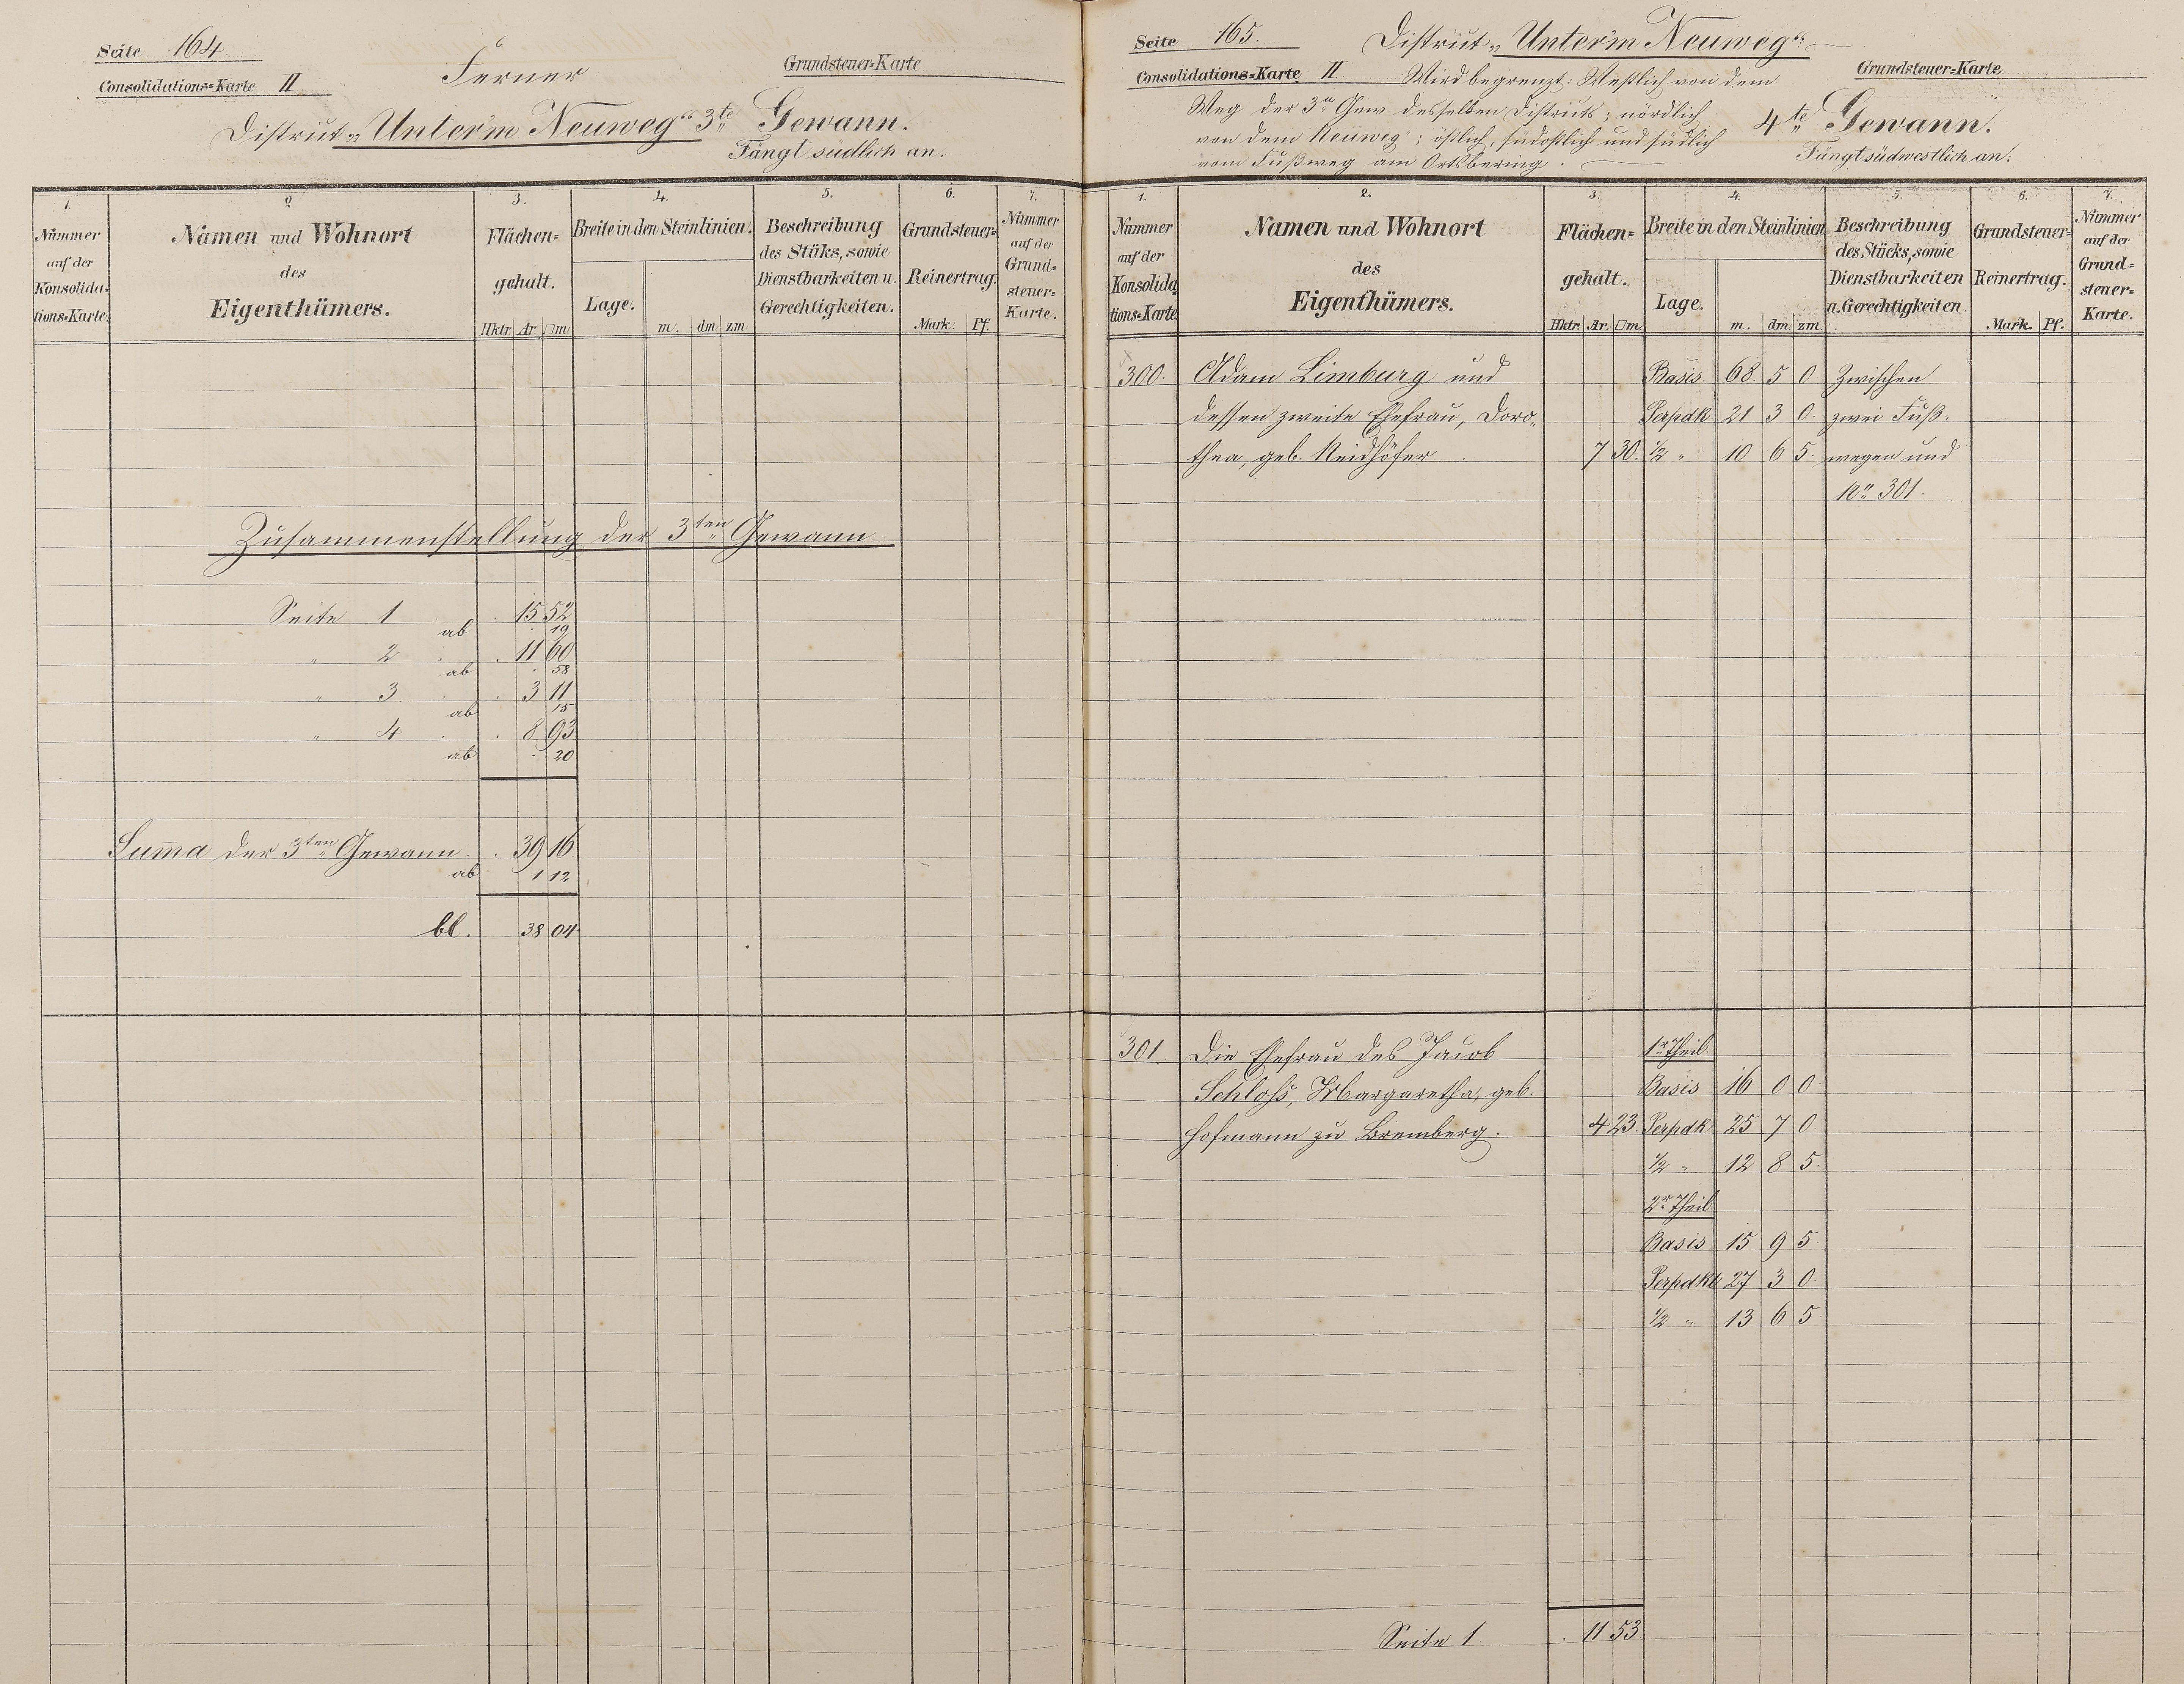 Seite 164
Consolidations=Karte II
Ferner
Grundsteuer=Karte
District „Unter'm Neuweg“ 3te Gewann.
Fängt südlich an.
1. 2. 3. 4. 5. 6. 7.
Nummer auf der Konsolidations=Karte.
Namen und Wohnort
des
Eigenthümers.
Flächen=
gehalt.
Hktr Ar □m.
Breite in den Steinlinien.
Lage.
m. dm zm
Beschreibung
des Stüks, sowie
Dienstbarkeiten u.
Gerechtigkeiten.
Grundsteuer=
Reinertrag.
Mark. Pf.
Nummer
auf der
Grund=
steuer=
Karte.
Zusammenstellung der 3ten Gewann
Seite 1 . 15 52
ab . 19
„ 2 . 11 60
ab . 58
„ 3 . 3 11
ab 15
„ 4 . 8 93
ab . 20
Summa der 3ten Gewann . 39 16
ab 1 12
bl. 38 04
Seite 165.
Consolidations=Karte II
District „Unter'm Neuweg“
Grundsteuer=Karte
Wird begrenzt: Westlich von dem
Weg der 3n Gew. desselben Districts; nördlich
von dem Neuweg; östlich, südöstlich und südlich
vom Fußweg am Ortsbering.
4te Gewann.
Fängt südwestlich an:
1. 2. 3. 4. 5. 6. 7.
Nummer
auf der
Konsolida
tions=Karte
Namen und Wohnort
des
Eigenthümers.
Flächen=
gehalt.
Hktr. Ar. □m.
Breite in den Steinlinien
Lage.
m. dm zm.
Beschreibung
des Stücks, sowie
Dienstbarkeiten
u. Gerechtigkeiten.
Grundsteuer=
Reinertrag.
Mark. Pf.
Nummer
auf der
Grund=
steuer=
Karte.
300. Adam Limburg und Basis 68. 5 0 Zwischen
dessen zweite Ehefrau, Doro„ Perpdk 21 3 0. zwei Fuß=
thea, geb. Neidhöfer 7 30. ½ „ 10 6 5. wegen und
No 301.
301. Die Ehefrau des Jacob 1r Theil
Schloß, Margaretha, geb. Basis 16 0 0
Hofmann zu Bremberg. 4 23. Perpdk 25 7 0
½ „ 12 8 5.
2r Theil
Basis 15 9 5
Perpdkl 27 3 0.
½ „ 13 6 5
Seite 1. . 11 53